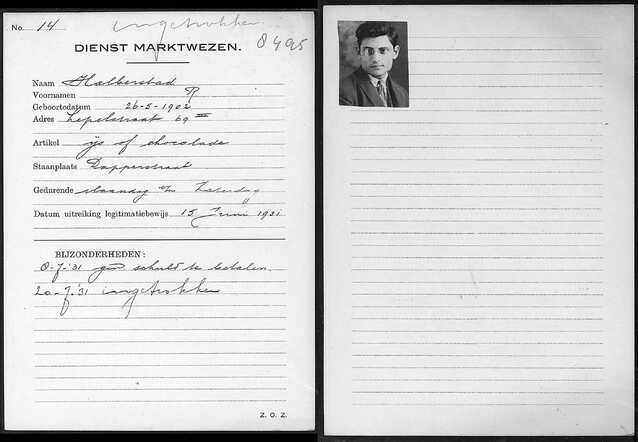 No. 14 ingetrokken
DIENST MARKTWEZEN.
Naam Halberstad
Voornamen R
Geboortedatum 26-5-1902
Adres Lepelstraat 69 III
Artikel ijs of chocolade
Staanplaats Dapperstraat
Gedurende Maandag t/m Zaterdag
Datum uitreiking legitimatiebewijs 15 Juni 1931
BIJZONDERHEDEN:
8-7-'31 geen schuld te betalen.
20-7-'31 ingetrokken
Z. O. Z.